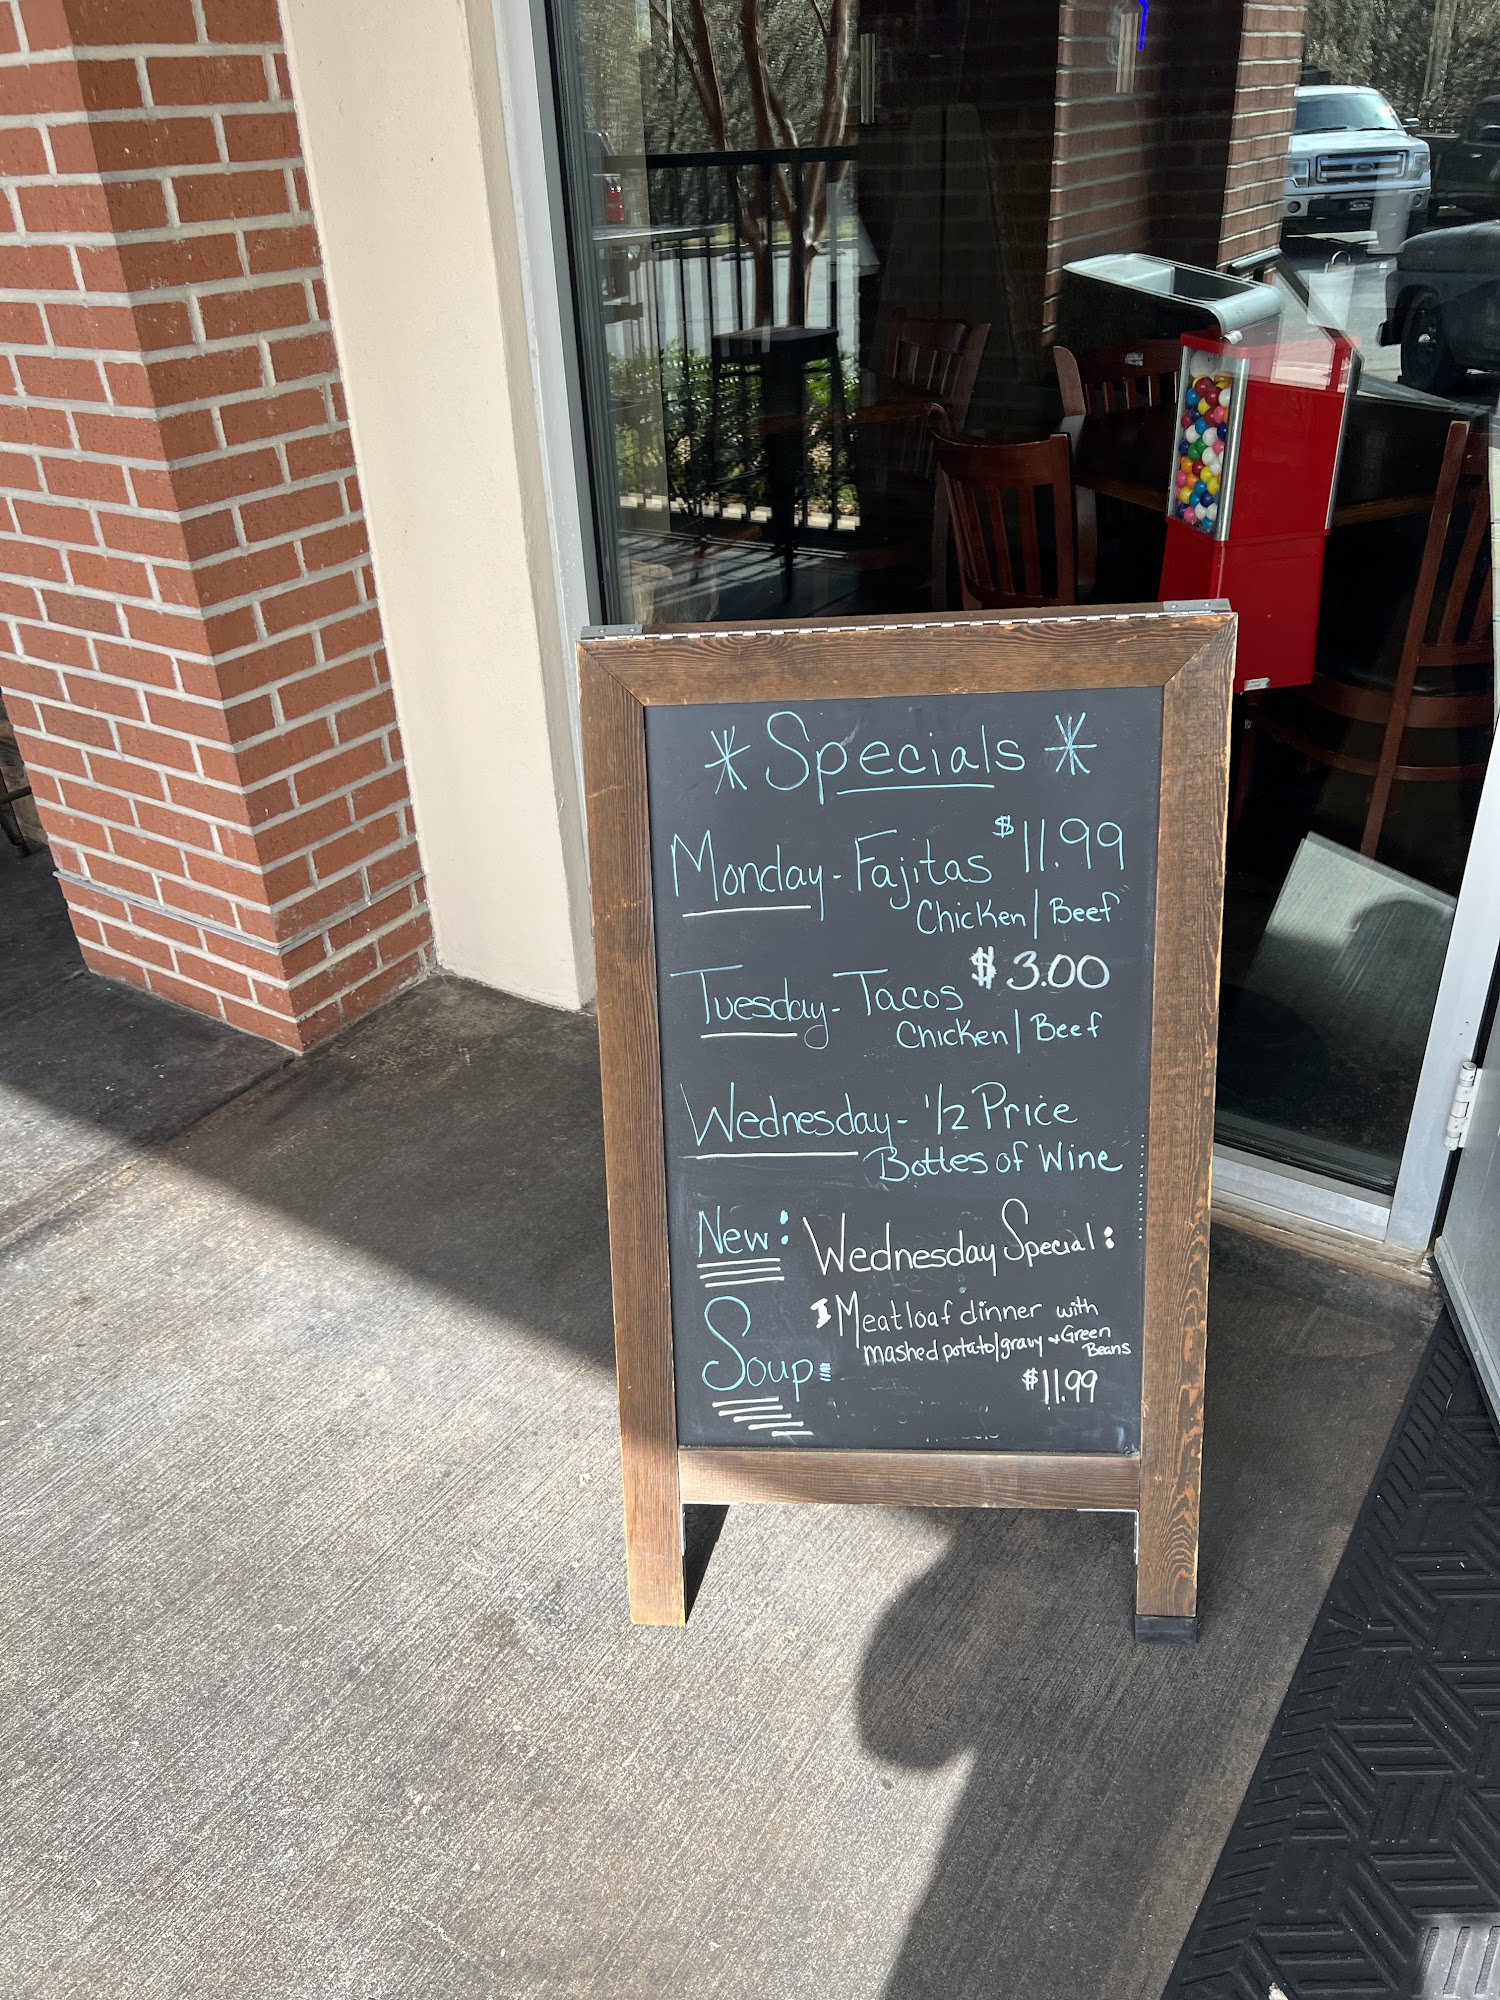 * Specials *
Monday - Fajitas $11.99
Chicken / Beef
Tuesday - Tacos $3.00
Chicken / Beef
Wednesday - 1/2 Price
Bottles of Wine
New: Wednesday Special:
Meatloaf dinner with
mashed potato/gravy + Green Beans
$11.99
Soup: